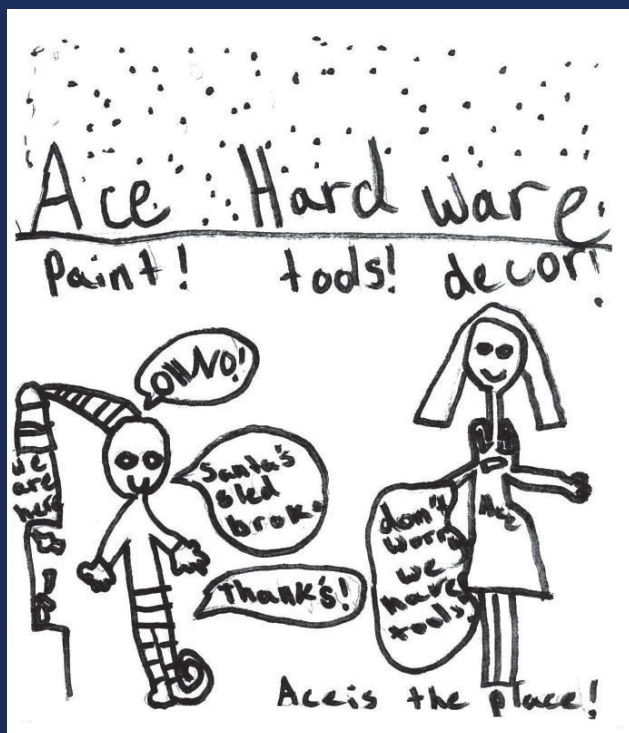 Ace Hard ware
Paint! tools! decor!
OH NO!
Santa's
sled
broke
we
are
here
Thank's!
don't
worry
we
have
tools.
Ace
Ace is the place!